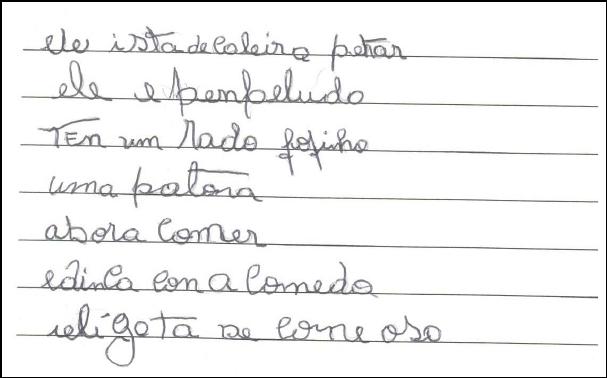 ele ista de coleira petar
ele e pempeludo
TEn um Rado fofinho
uma patona
abora comer
edinca con a comeda
ieli gota de come oso